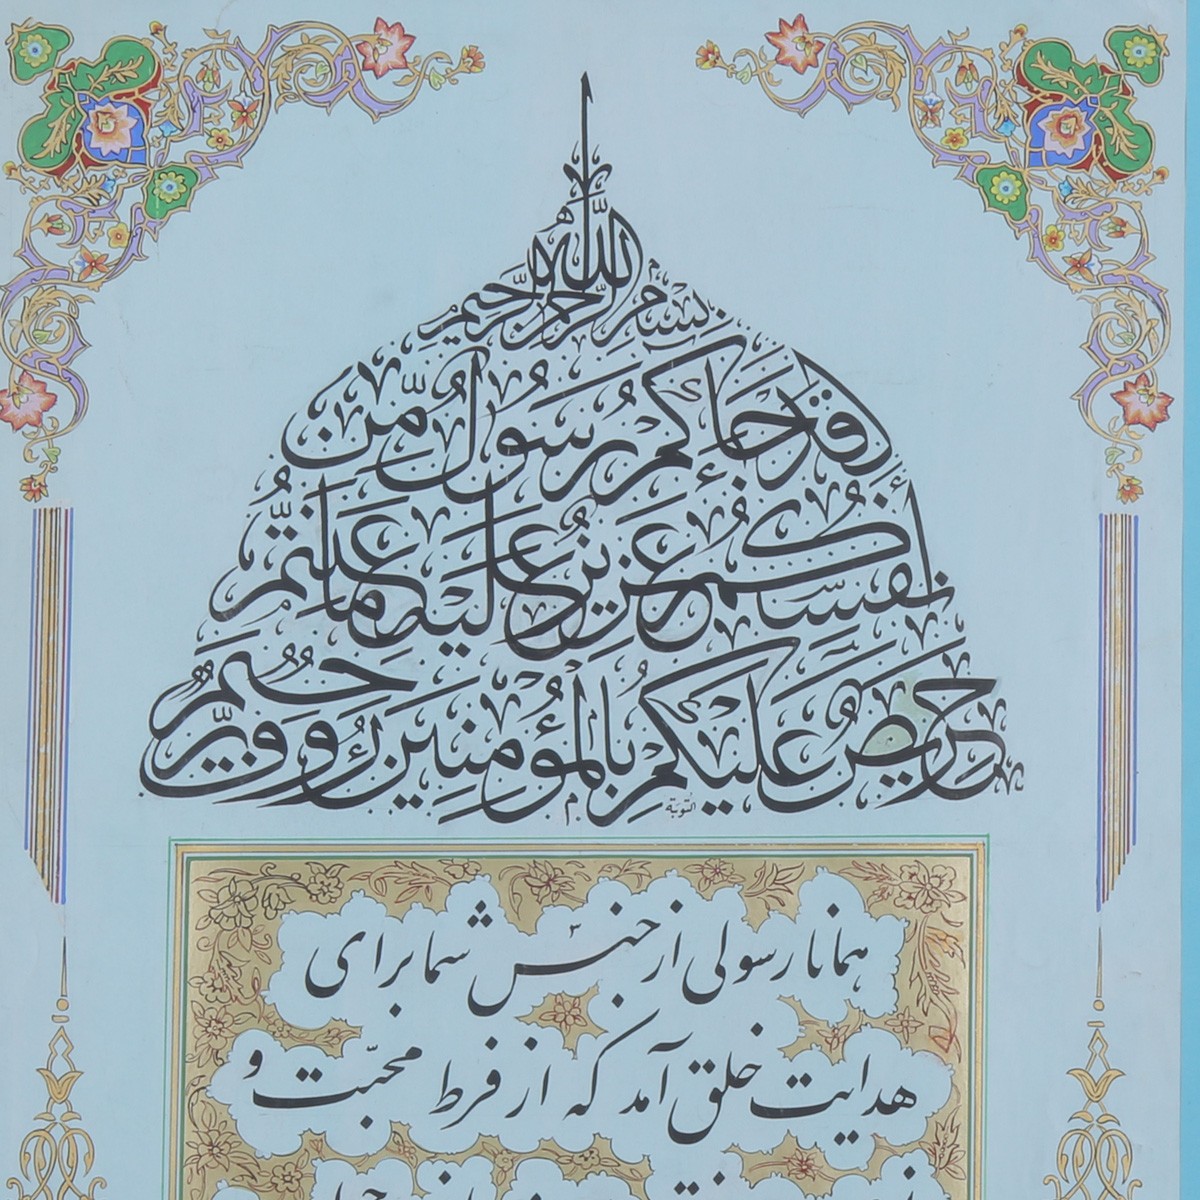 بِسْمِ اللهِ الرَّحْمٰنِ الرَّحِيمِ
لَقَدْ جَاءَكُمْ رَسُولٌ مِّنْ
أَنفُسِكُمْ عَزِيزٌ عَلَيْهِ مَا عَنِتُّمْ
حَرِيصٌ عَلَيْكُم بِالْمُؤْمِنِينَ رَءُوفٌ رَّحِيمٌ
التوبة
همانا رسولی از جنس شما برای
هدایت خلق آمد که از فرط محبّت و